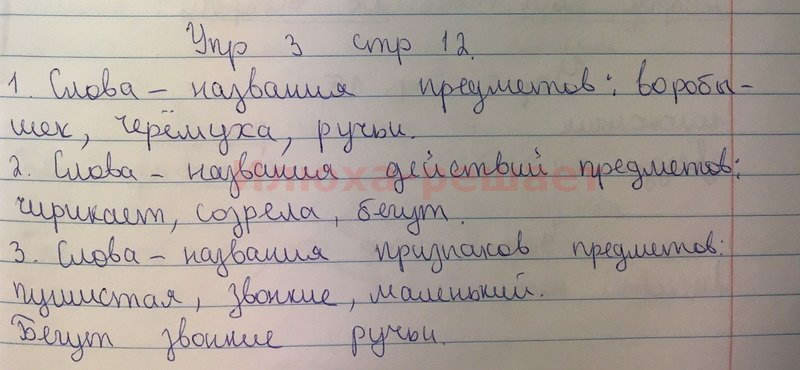 Упр 3 стр 12.
1. Слова – названия предметов: воробы-
шек, черёмуха, ручьи.
2. Слова – названия действий предметов:
Илюха-решает
чирикает, созрела, бегут.
3. Слова – названия признаков предметов:
пушистая, звонкие, маленький.
Бегут звонкие ручьи.